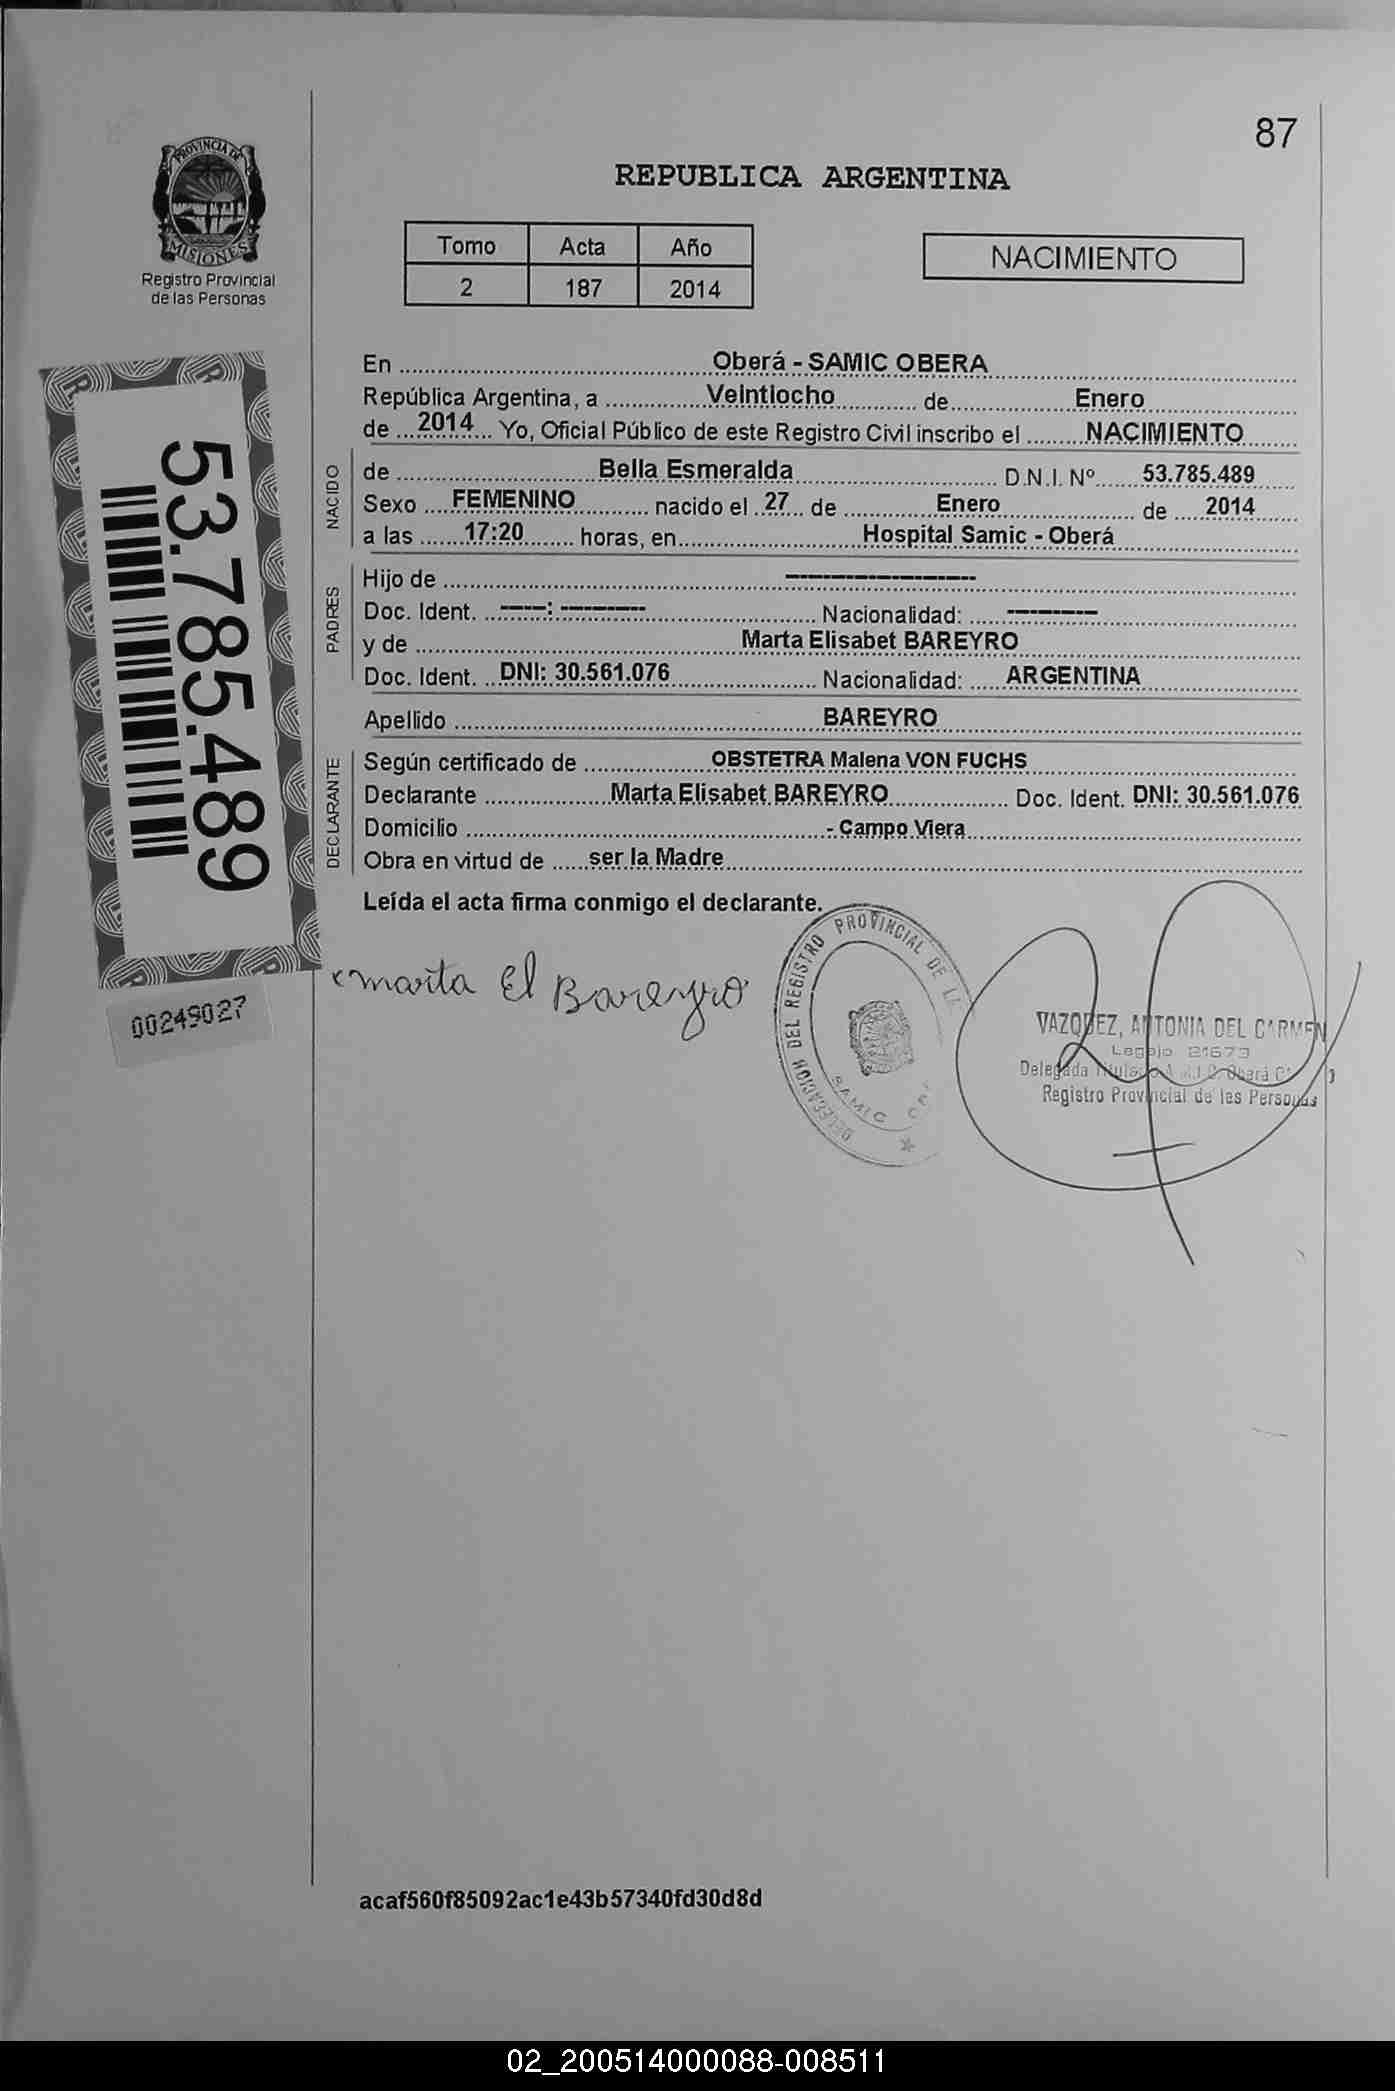 87
PROVINCIA DE
MISIONES
Registro Provincial
de las Personas
REPUBLICA ARGENTINA
Tomo Acta Año
2 187 2014
NACIMIENTO
En Oberá - SAMIC OBERA
República Argentina, a Veintiocho de Enero
de 2014 Yo, Oficial Público de este Registro Civil inscribo el NACIMIENTO
NACIDO
de Bella Esmeralda D.N.I. Nº 53.785.489
Sexo FEMENINO nacido el 27 de Enero de 2014
a las 17:20 horas, en Hospital Samic - Oberá
PADRES
Hijo de ---------------------
Doc. Ident. -----: ---------- Nacionalidad: ----------
y de Marta Elisabet BAREYRO
Doc. Ident. DNI: 30.561.076 Nacionalidad: ARGENTINA
Apellido BAREYRO
DECLARANTE
Según certificado de OBSTETRA Malena VON FUCHS
Declarante Marta Elisabet BAREYRO Doc. Ident. DNI: 30.561.076
Domicilio - Campo Viera
Obra en virtud de ser la Madre
Leída el acta firma conmigo el declarante.
53.785.489
00249027
marta El Bareyro
DELEGACION DEL REGISTRO PROVINCIAL DE LA
SAMIC
VAZQUEZ, ANTONIA DEL CARMEN
Legajo 21673
Delegada Titular Oberá
Registro Provincial de las Personas
acaf560f85092ac1e43b57340fd30d8d
02_200514000088-008511